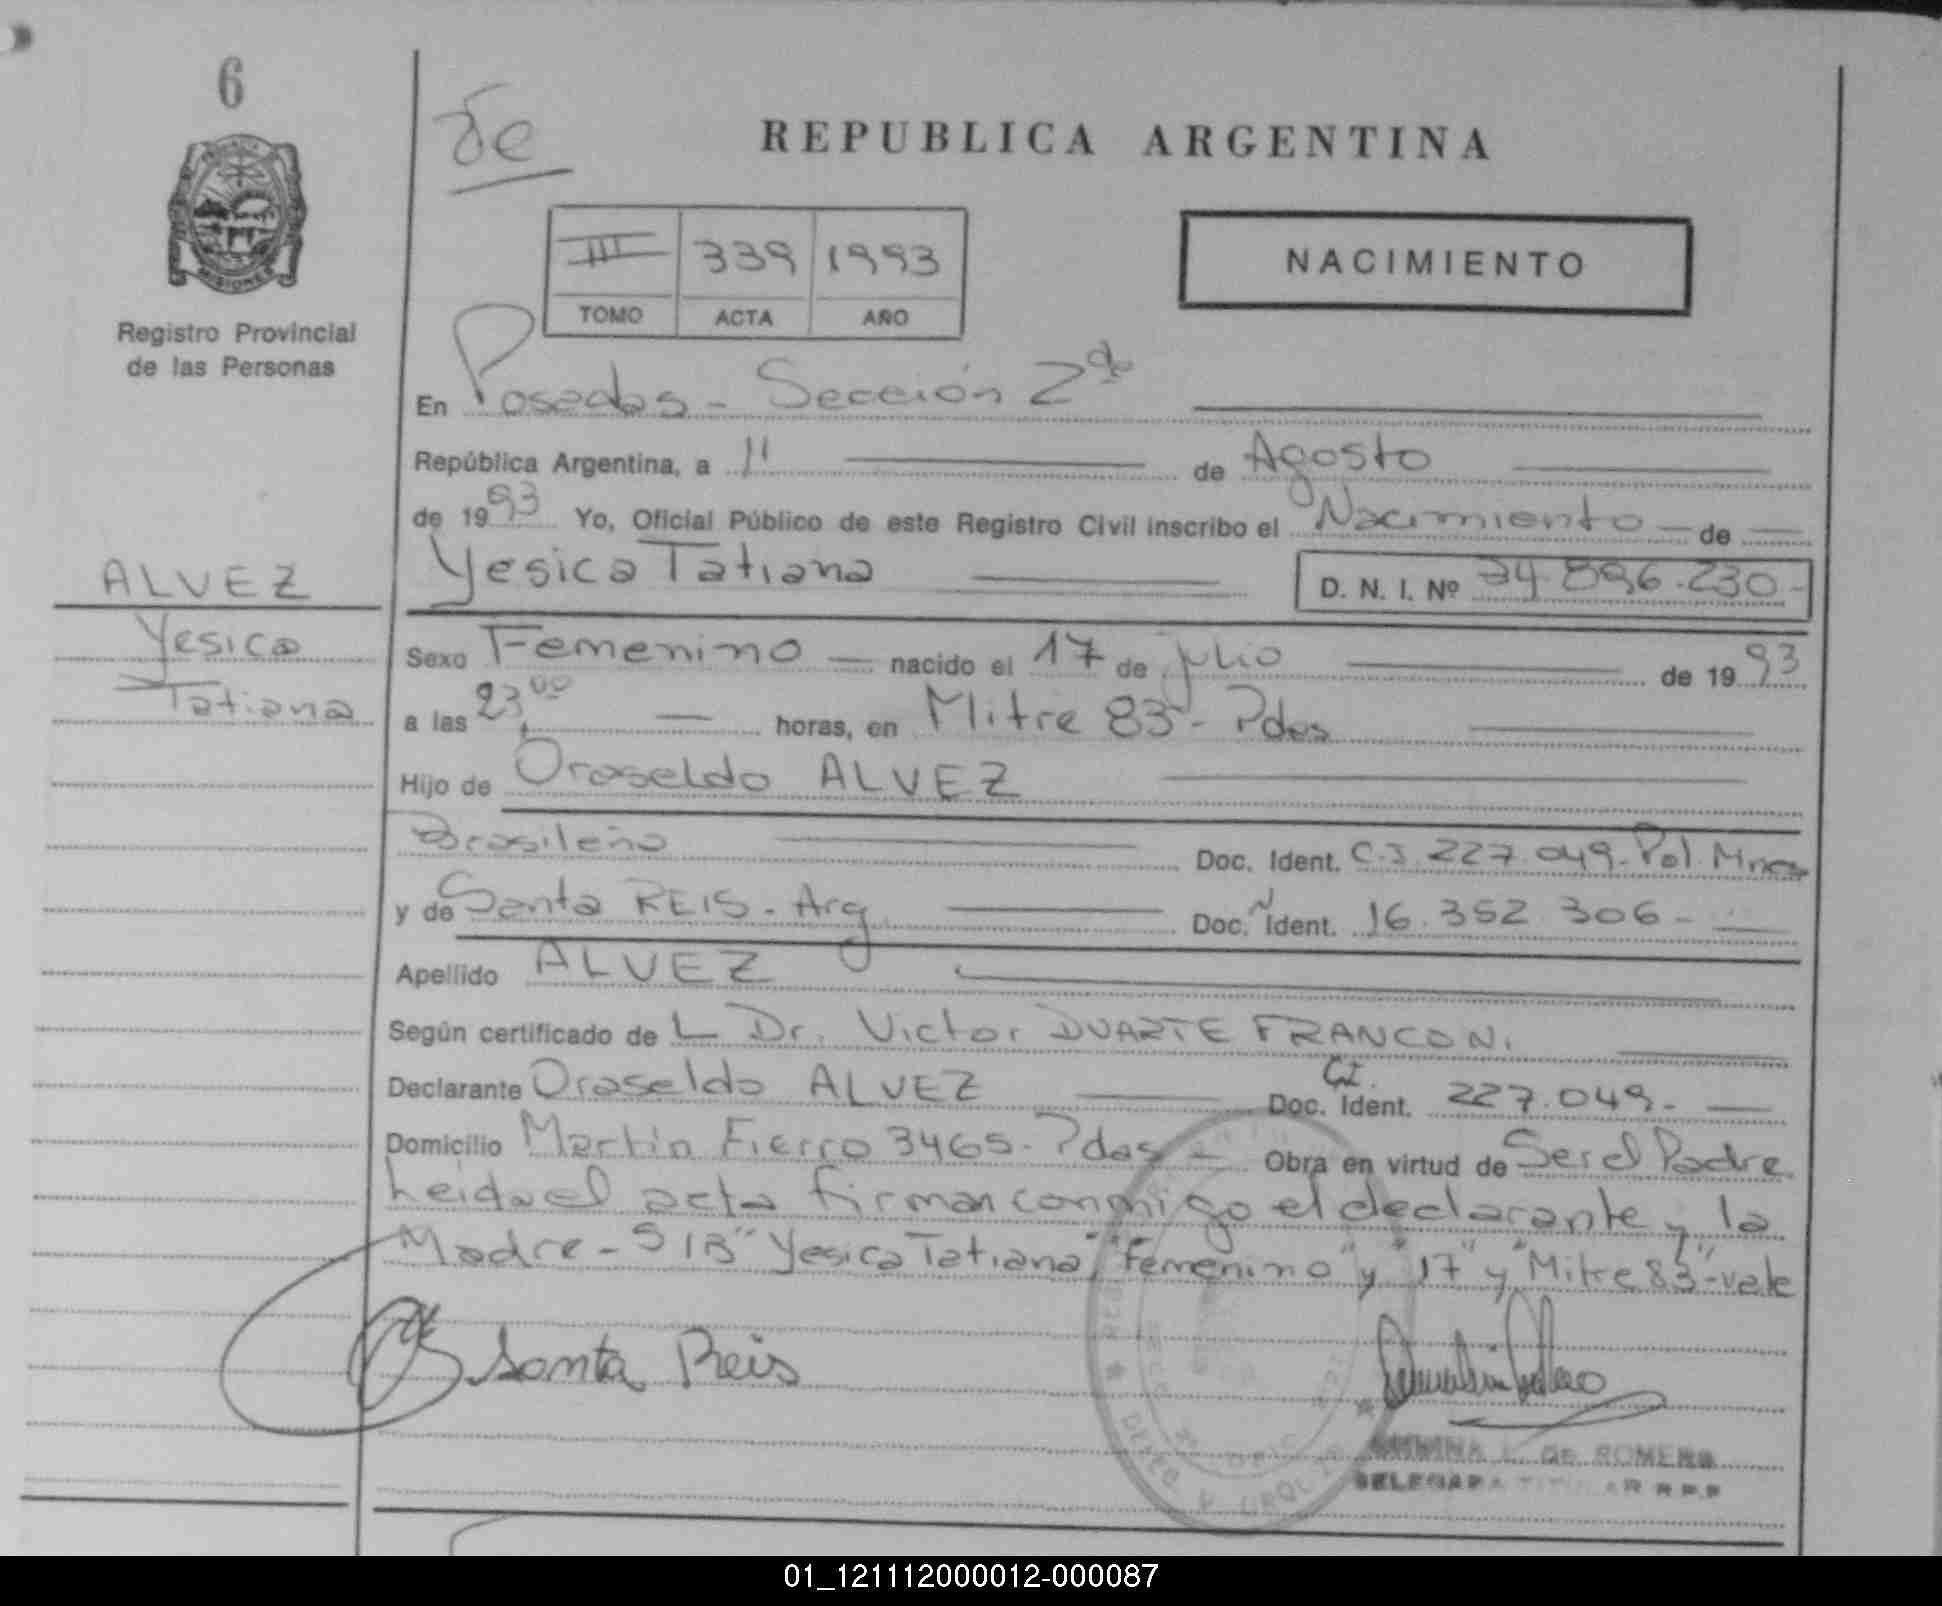 6
Registro Provincial
de las Personas
ALVEZ
Yesica
Tatiana
de
REPUBLICA ARGENTINA
III 339 1993
TOMO ACTA AÑO
NACIMIENTO
En Posadas - Sección 2da
República Argentina, a 11 de Agosto
de 1993 Yo, Oficial Público de este Registro Civil inscribo el Nacimiento de
Yesica Tatiana D. N. I. Nº 34.896.230-
Sexo Femenino nacido el 17 de julio de 1993
a las 23,00 horas, en Mitre 83 - Pdas
Hijo de Oraseldo ALVEZ
Brasileño Doc. Ident. C.I. 227.049 - Pol. Mnes
y de Santa REIS - Arg. Doc. Ident. 16.352.306 -
Apellido ALVEZ
Según certificado de L Dr. Victor DUARTE FRANCONI
Declarante Oraseldo ALVEZ Doc. Ident. C.I. 227.049 -
Domicilio Martin Fierro 3465 - Pdas - Obra en virtud de Ser el Padre
Leida el acta firman conmigo el declarante y la
Madre - S/B "Yesica Tatiana", "Femenino" y "17" y "Mitre 83" - vale
Santa Reis
L. DE ROMERO
DELEGADA TITULAR R.P.P
01_121112000012-000087